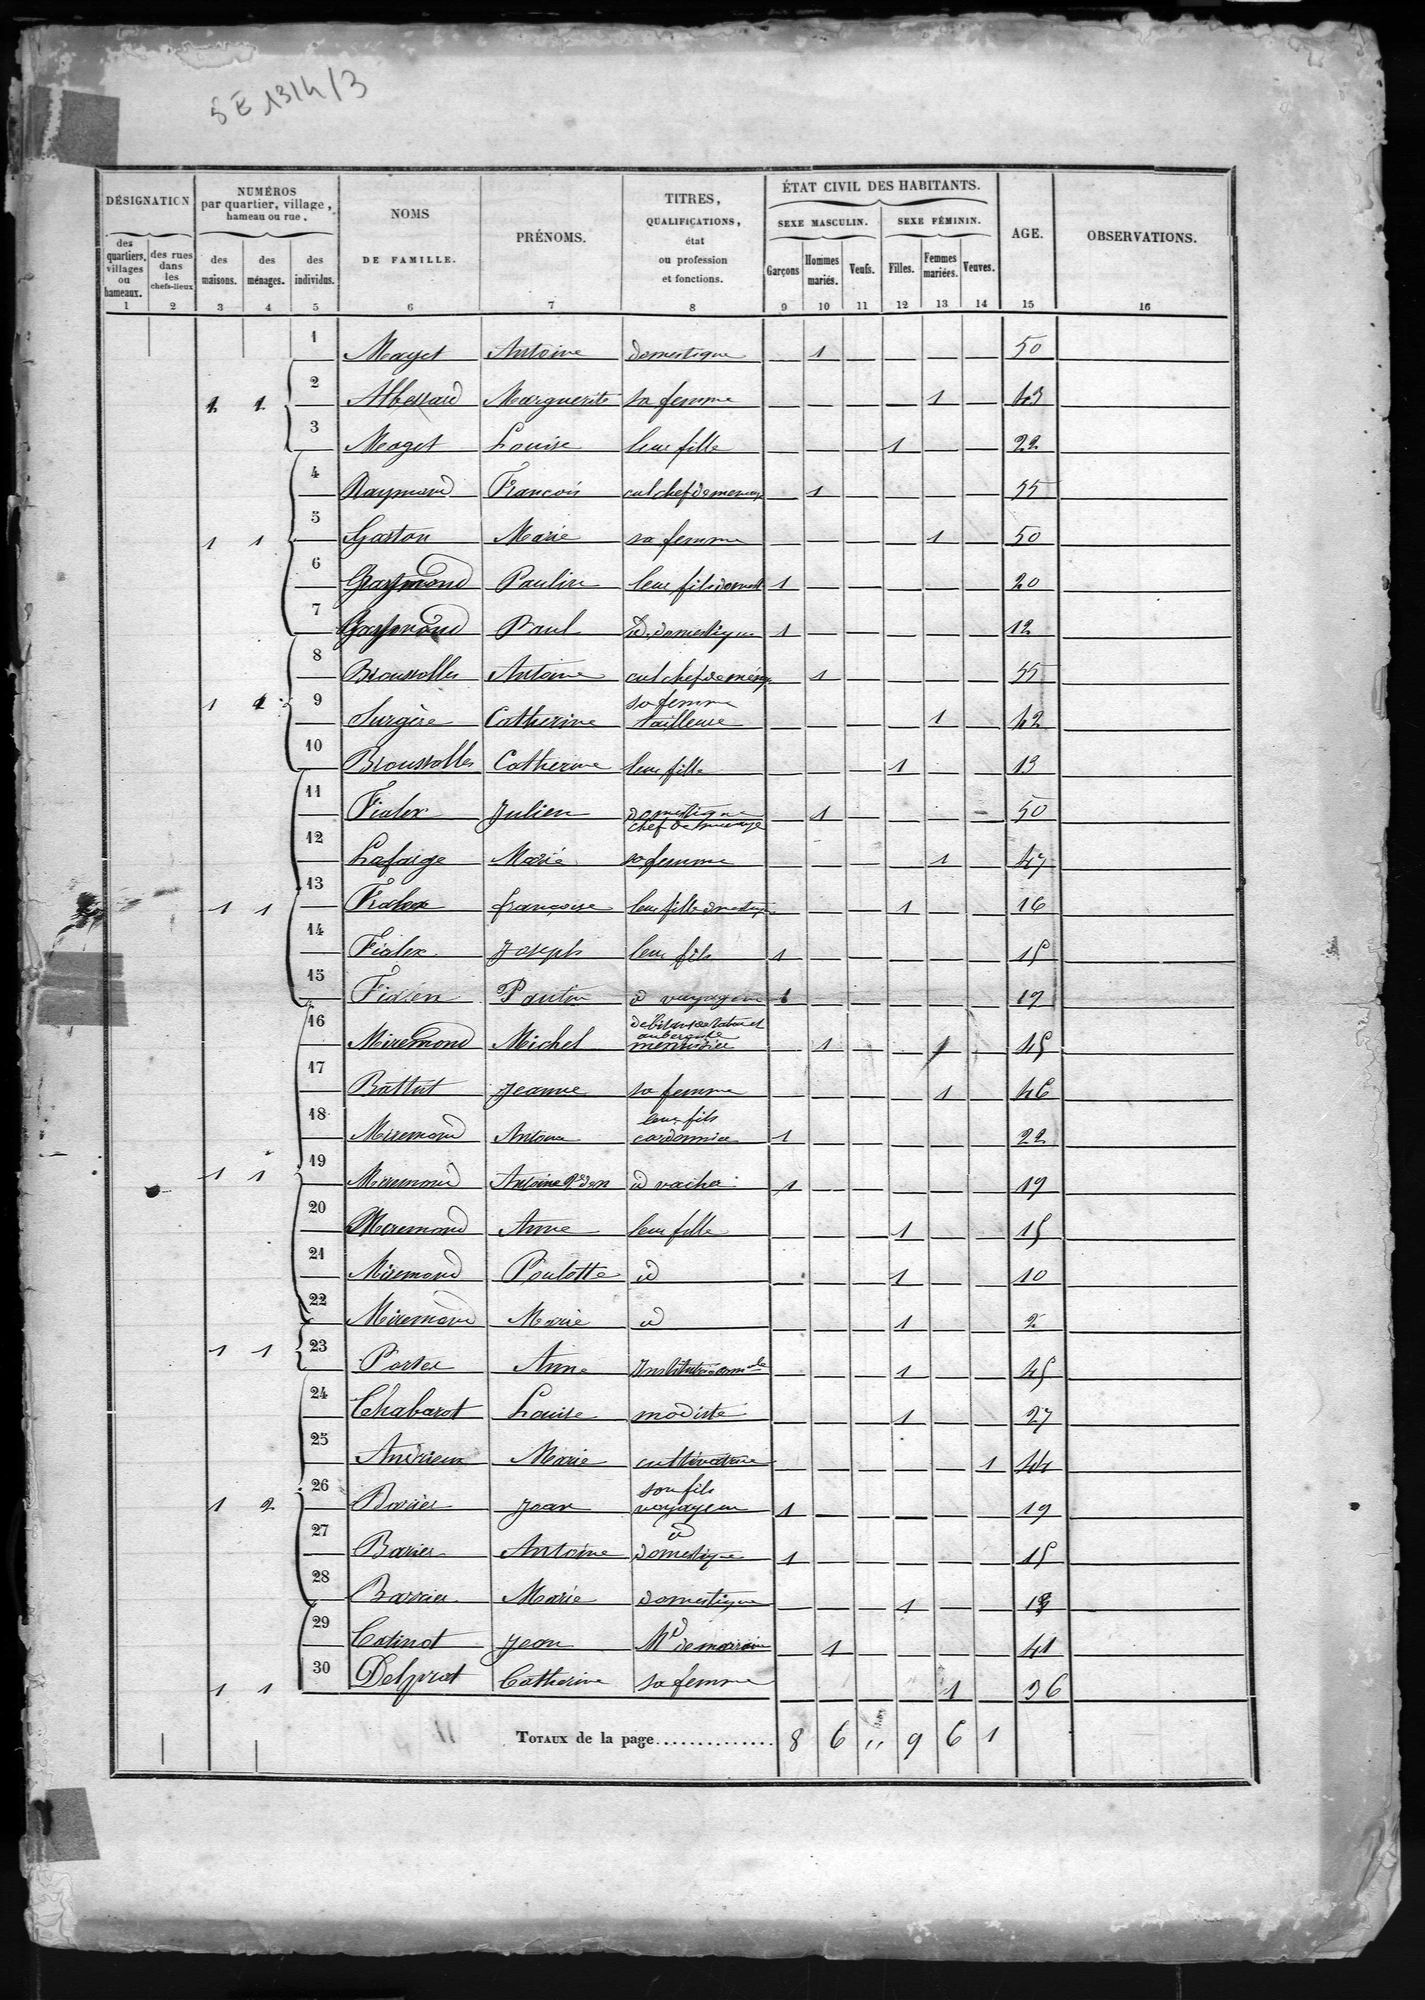 5 E 1314/3
DÉSIGNATION
des quartiers, villages ou hameaux.
des rues dans les chefs-lieux
NUMÉROS
par quartier, village,
hameau ou rue.
des maisons.
des ménages.
des individus.
NOMS
DE FAMILLE.
PRÉNOMS.
TITRES,
QUALIFICATIONS,
état
ou profession
et fonctions.
ÉTAT CIVIL DES HABITANTS.
SEXE MASCULIN.
SEXE FÉMININ.
Garçons
Hommes mariés.
Veufs.
Filles.
Femmes mariées.
Veuves.
AGE.
OBSERVATIONS.
1 2 3 4 5 6 7 8 9 10 11 12 13 14 15 16
1 Mayet Antoine domestique 1 50
1 1 2 Albessard Marguerite sa femme 1 43
3 Maget Louise leur fille 1 22
4 Raymond François cult chef de menage 1 55
1 1 5 Gaston Marie sa femme 1 50
6 Raymond Paulin leur fils domest 1 20
7 Raymond Paul id. domestique 1 12
8 Broussolles Antoine cult chef de ménage 1 55
1 1 9 Surgère Catherine sa femme tailleuse 1 42
10 Broussolles Catherine leur fille 1 13
11 Fialex Julien domestique chef de menage 1 50
12 Lafarge Marie sa femme 1 47
1 1 13 Fialex françoise leur fille domestique 1 16
14 Fialex Joseph leur fils 1 15
15 Paulin id voyageur 1 19
16 Miremond Michel debitant de tabac et aubergiste menuisier 1 1 45
17 Battut Jeanne sa femme 1 46
18 Miremond Antoine leur fils cordonnier 1 22
1 1 19 Miremond Antoine id 1 19
20 Miremond Anne leur fille 1 15
21 Miremond Poulotte id 1 10
22 Miremond Marie id 1 2
1 1 23 Portier Anne Institutrice comle 1 45
24 Chabarot Louise modiste 1 27
25 Andrieux Marie cultivatrice 1 44
1 2 26 Barier Jean son fils voyageur 1 19
27 Barier Antoine id domestique 1 15
28 Barrier Marie domestique 1
29 Catinot Jean Md de mercerie 1 41
1 1 30 Delprat Catherine sa femme 1 36
TOTAUX de la page.............. 8 6 " 9 6 1